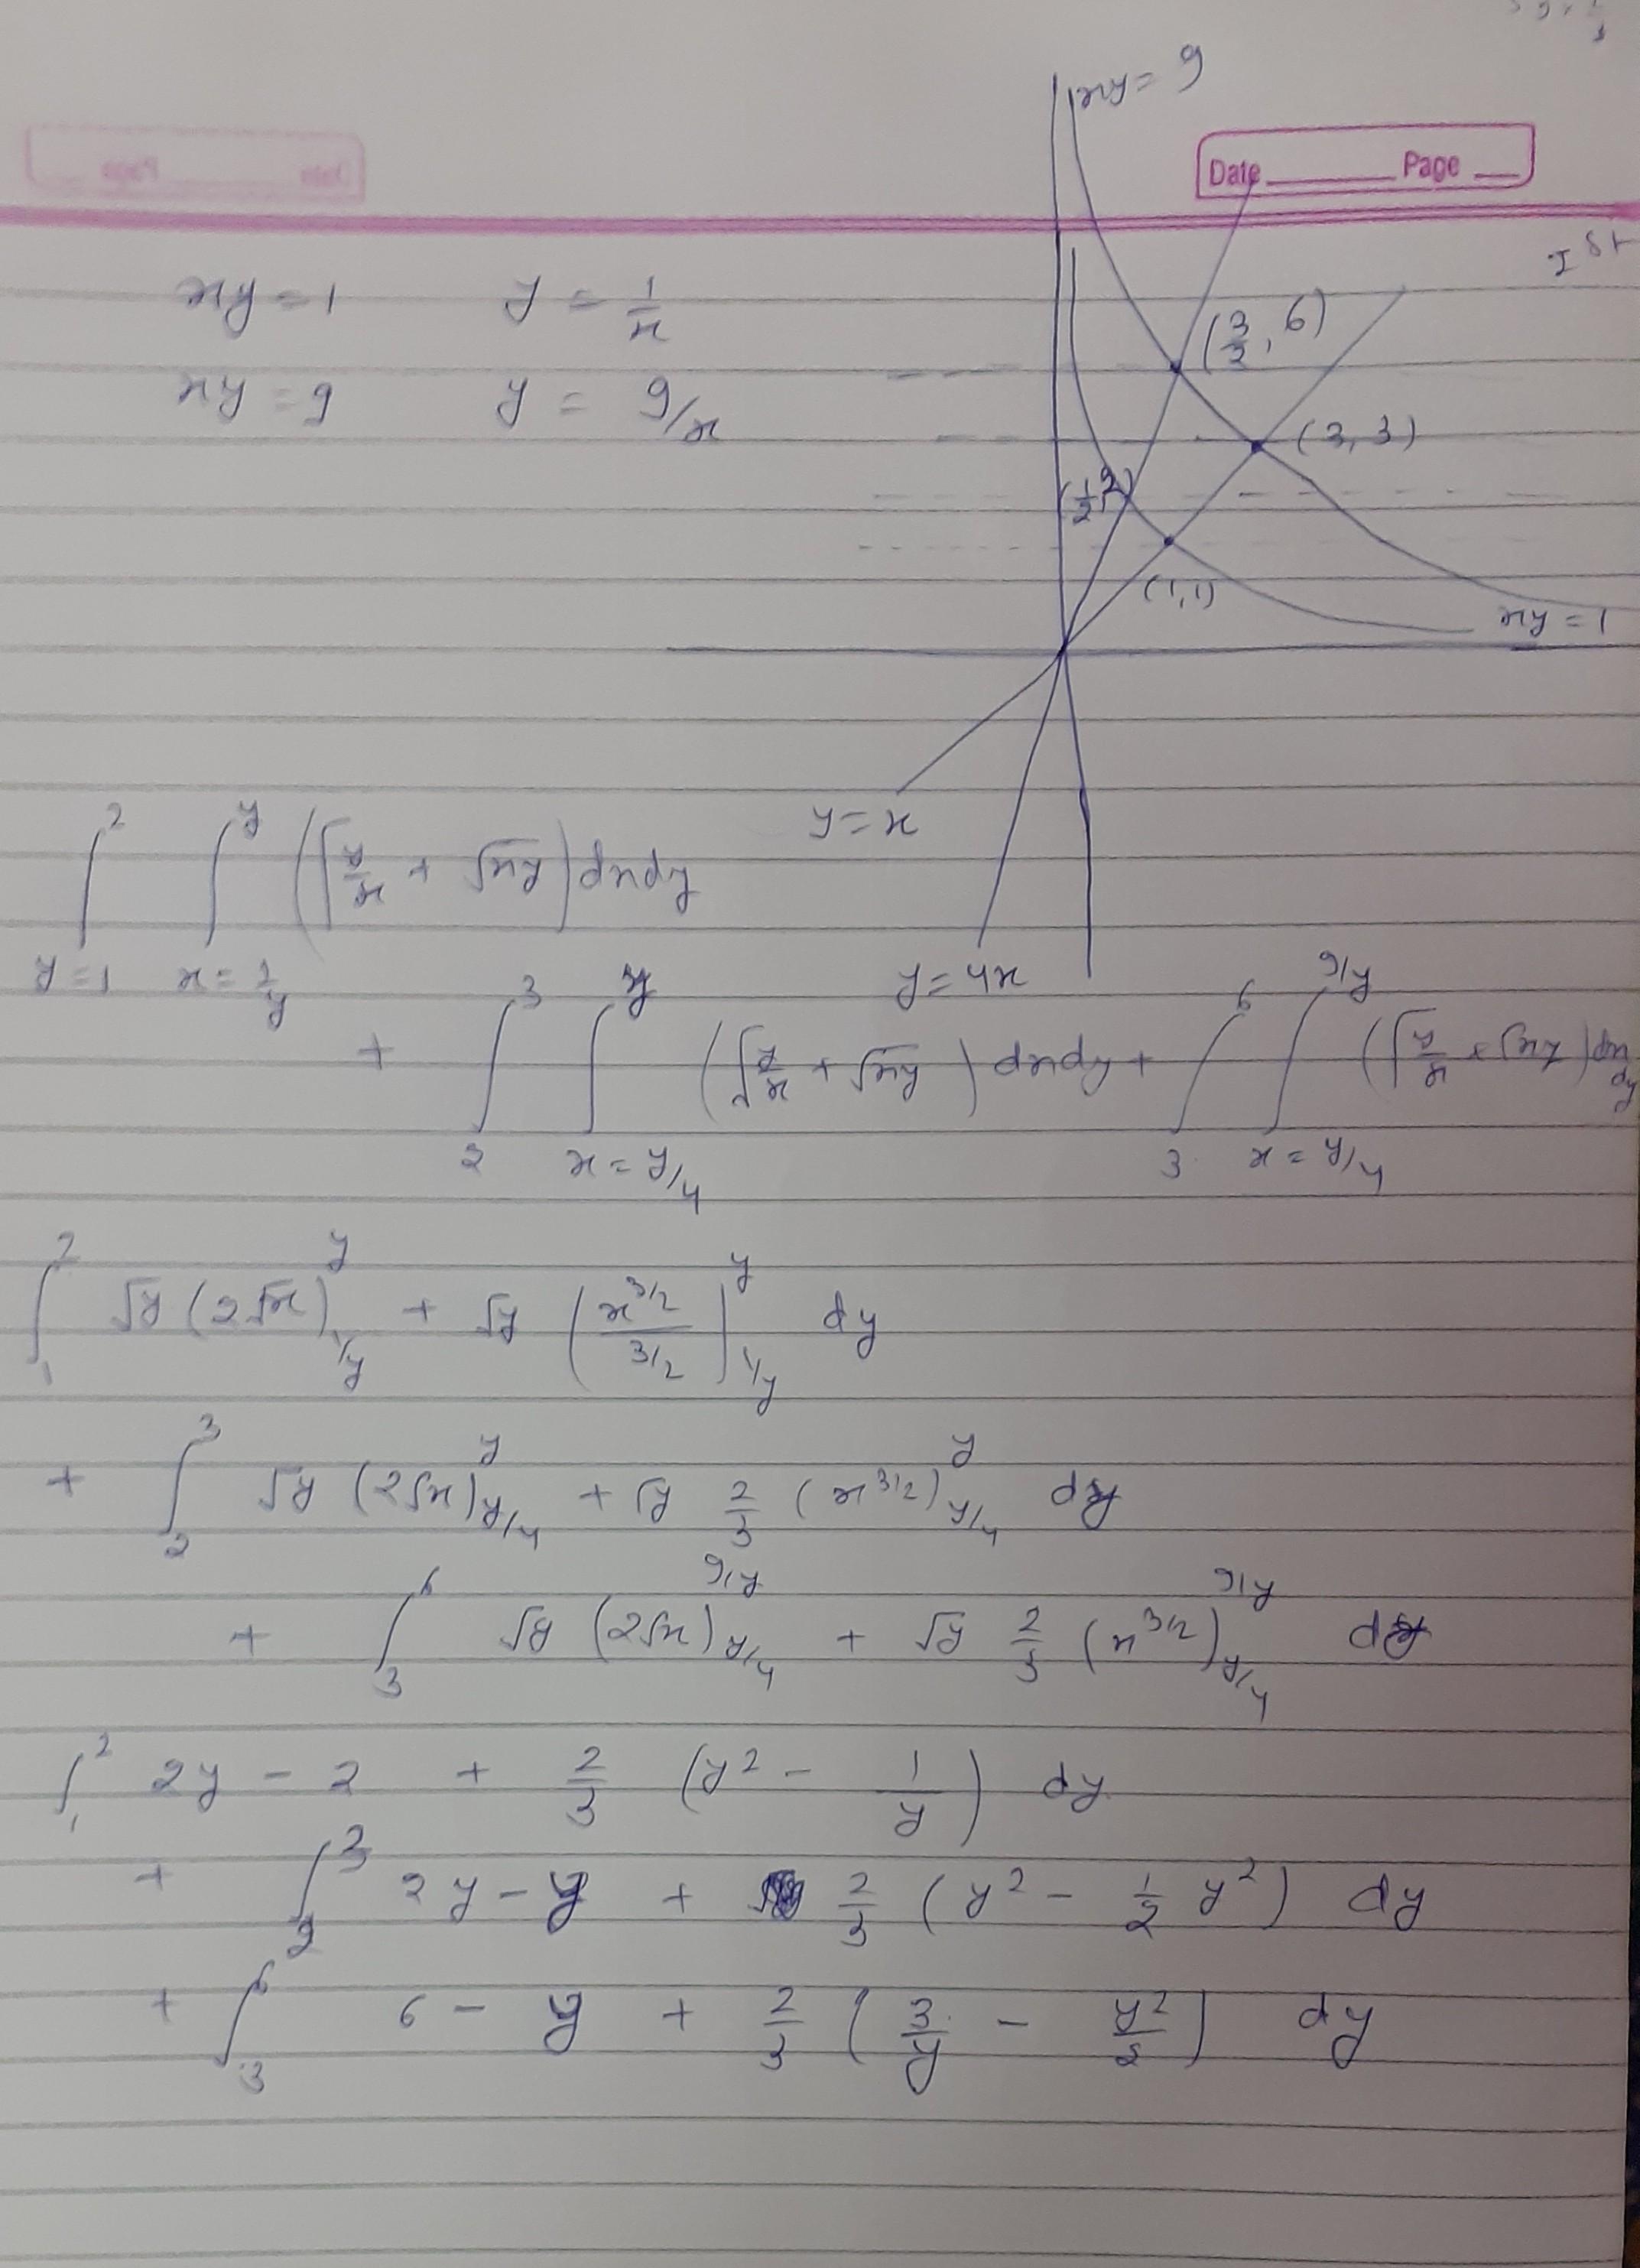 xy = 9
Date Page
xy = 1 y = 1/x
xy = 9 y = 9/x
(3/2, 6)
(3, 3)
(1/2, 2)
(1, 1)
xy = 1
y = x
y = 4x
∫_{y=1}^{2} ∫_{x=1/y}^{y} (√(y/x) + √xy) dx dy
+ ∫_{2}^{3} ∫_{x=y/4}^{y} (√(y/x) + √xy) dx dy + ∫_{3}^{6} ∫_{x=y/4}^{9/y} (√(y/x) + √xy) dx dy
∫_{1}^{2} √y (2√x)_{1/y}^{y} + √y (x^{3/2} / 3/2)_{1/y}^{y} dy
+ ∫_{2}^{3} √y (2√x)_{y/4}^{y} + √y 2/3 (x^{3/2})_{y/4}^{y} dy
+ ∫_{3}^{6} √y (2√x)_{y/4}^{9/y} + √y 2/3 (x^{3/2})_{y/4}^{9/y} dy
∫_{1}^{2} 2y - 2 + 2/3 (y² - 1/y) dy
+ ∫_{2}^{3} 2y - y + 2/3 (y² - 1/2 y²) dy
+ ∫_{3}^{6} 6 - y + 2/3 (3/y - y²/2) dy